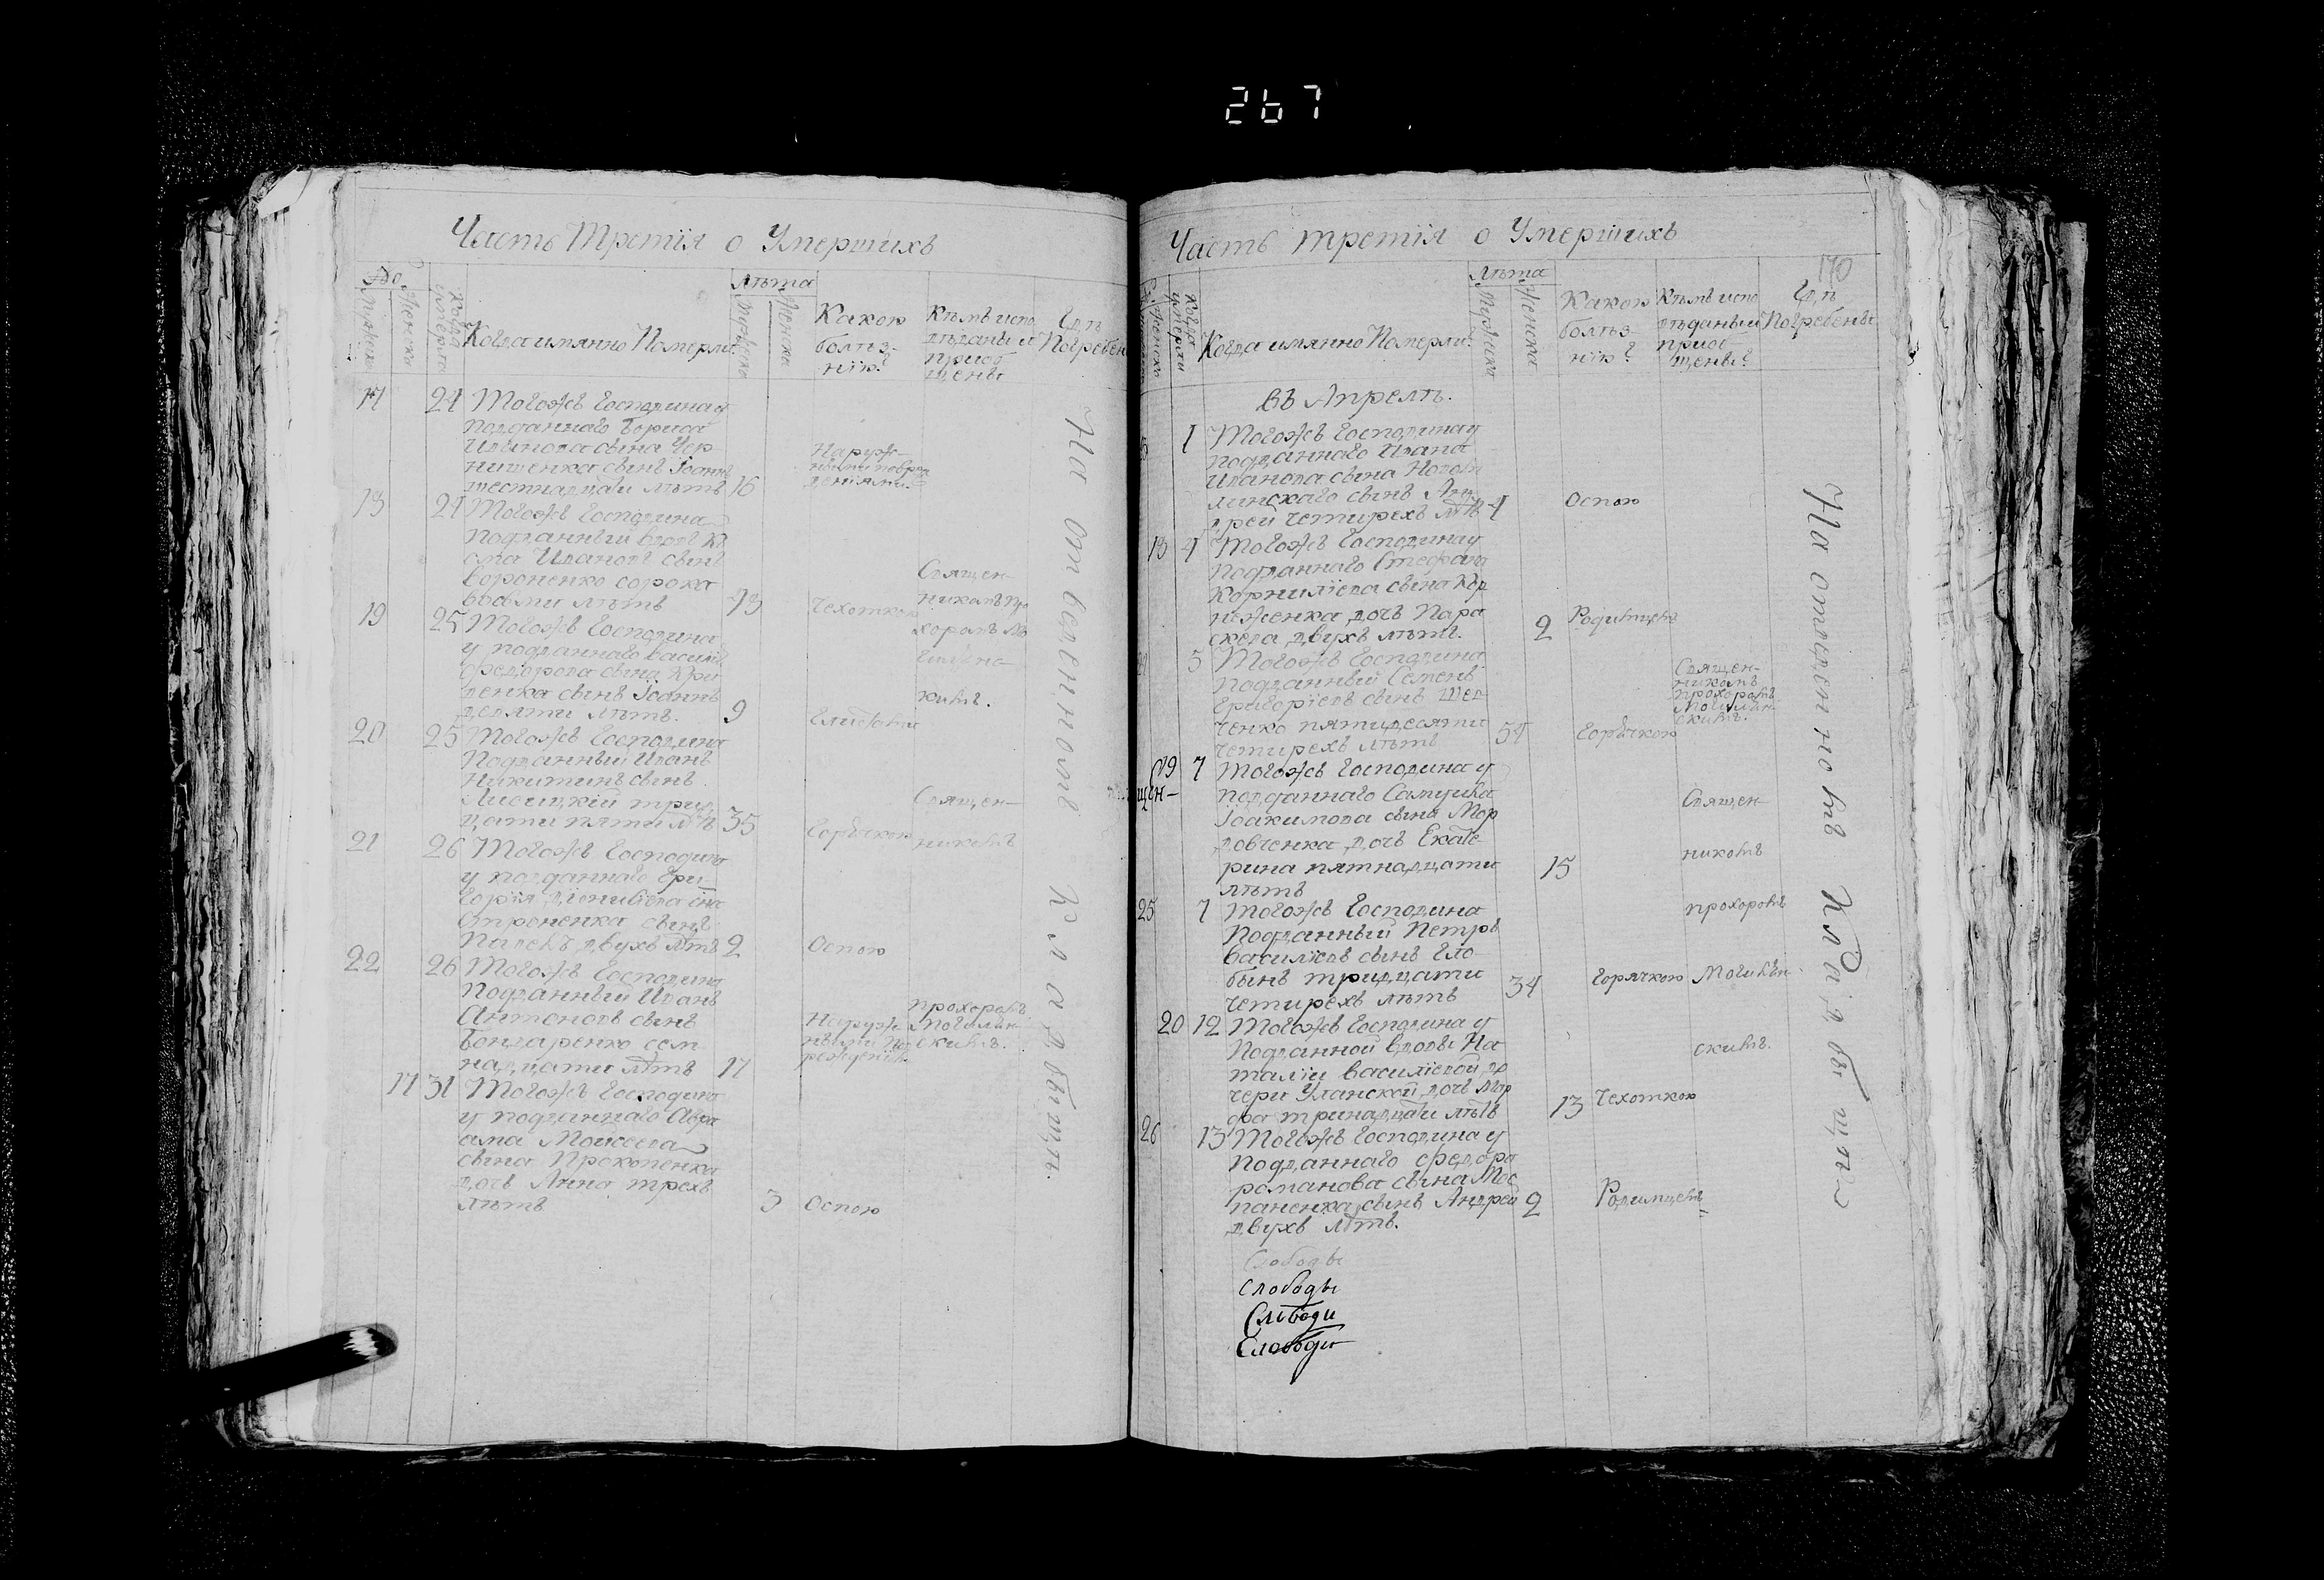 267
Часть Третїя о Умершихъ
Лѣта
Когда имянно Померли?
Какою
болѣз-
нїю?
Кѣмъ испо
вѣданы и
приоб
щены
Гдѣ
Погребен
17 24 Тогожъ Господина у
подданнаго Бориса
Иванова сына Чер
нишенка сынъ Іоаннъ
шестнадцати лѣтъ 16
Наруж-
18 24 Тогожъ Господина
подданный
Ивановъ сынъ
Вороненко сорока
восми лѣтъ 48 Чехоткою
Священ-
никомъ Про
хоромъ Мо
гилян-
скимъ.
19 25 Тогожъ Господина
у подданнаго Василія
Федорова сына
сынъ Іоаннъ
девяти лѣтъ. 9
20 25 Тогожъ Господина
Подданный Иванъ
Никитинъ сынъ
Лисицкїй трид
цати пяти лѣтъ 35 Горячкою
Священ-
никомъ
21 26 Тогожъ Господина
у подданнаго Гри-
горїя Дїонисїева сна
сынъ
Павелъ двухъ лѣтъ 2 Оспою
22 26 Тогожъ Господина
Подданный Иванъ
Антоновъ сынъ
Бондаренко сем
надцати лѣтъ 17
Наруж
прохоромъ
Могилян-
скимъ.
17 31 Тогожъ Господина
у подданнаго Авра
ама Моисеева
сына Прокопенка
дочь Анна трехъ
лѣтъ 3 Оспою
На отведенномъ Кладбищѣ.
Часть третїя о Умершихъ
170
Лѣта
Когда
умерли
Когда имянно Померли?
Мужска
Женска
Какою
болѣз-
нїю?
Кѣмъ испо
вѣданы и
приоб
щены?
Гдѣ
Погребены
въ Апрелѣ.
1 Тогожъ Господина у
подданнаго Ивана
Иванова сына
сынъ Ан
дрей четирехъ лѣтъ 4 Оспою
18 4 Тогожъ Господина у
подданнаго Стефана
Корнилїева сына
дочь Пара
скева двухъ лѣтъ. 2 Родимцемъ
5 Тогожъ Господина
подданный Семенъ
Григорїевъ сынъ Шев
ченко пятидесяти
четирехъ лѣтъ 54 Горячкою
Священ-
никомъ
прохоромъ
Могилян-
скимъ.
19 7 Тогожъ Господина у
подданнаго Самуила
Іоакимова сына Мор
довченка дочь Екате-
рина пятнадцати
лѣтъ 15
щен-
Священ-
никомъ
прохоромъ
25 7 Тогожъ Господина
Подданный Петръ
Василїевъ сынъ
тридцати
четирехъ лѣтъ 34 Горячкою Могилян-
скимъ.
20 12 Тогожъ Господина у
Подданной вдовы На
талїи Василїевой до
чери Уланской дочь Мар
фа тринадцати лѣтъ 13 Чехоткою
26 13 Тогожъ Господина у
Подданнаго Федора
романова сына Мос
паненка сынъ Андрей 2 Родимцемъ
двухъ лѣтъ.
На отведенномъ Кладбищѣ
Слободы
Слободы
Слободи
Слободи